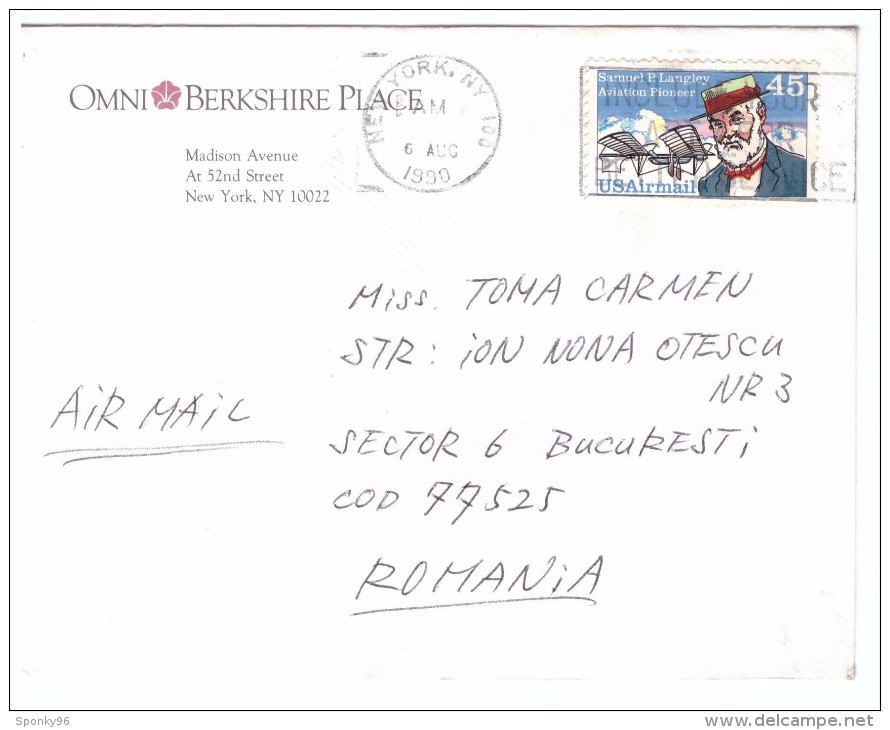 OMNI BERKSHIRE PLACE
Madison Avenue
At 52nd Street
New York, NY 10022
NEW YORK, NY 100
AM
6 AUG
1990
Samuel P. Langley
Aviation Pioneer
45
USAirmail
Miss. TOMA CARMEN
STR: ION NONA OTESCU
NR 3
AIR MAIL
SECTOR 6 BUCURESTI
COD 77525
ROMANIA
Sponky96